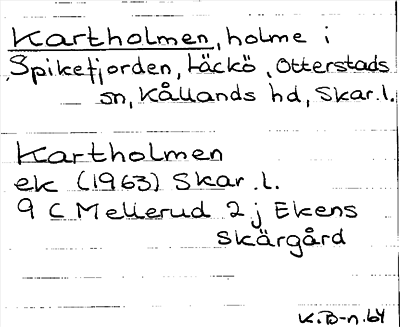 Kartholmen, holme i
Spikefjorden, Läckö, Otterstads
sn, Kållands hd, Skar.l.
Kartholmen
ek (1963) Skar.l.
9 C Mellerud 2 j Ekens
skärgård
K.B-n.64